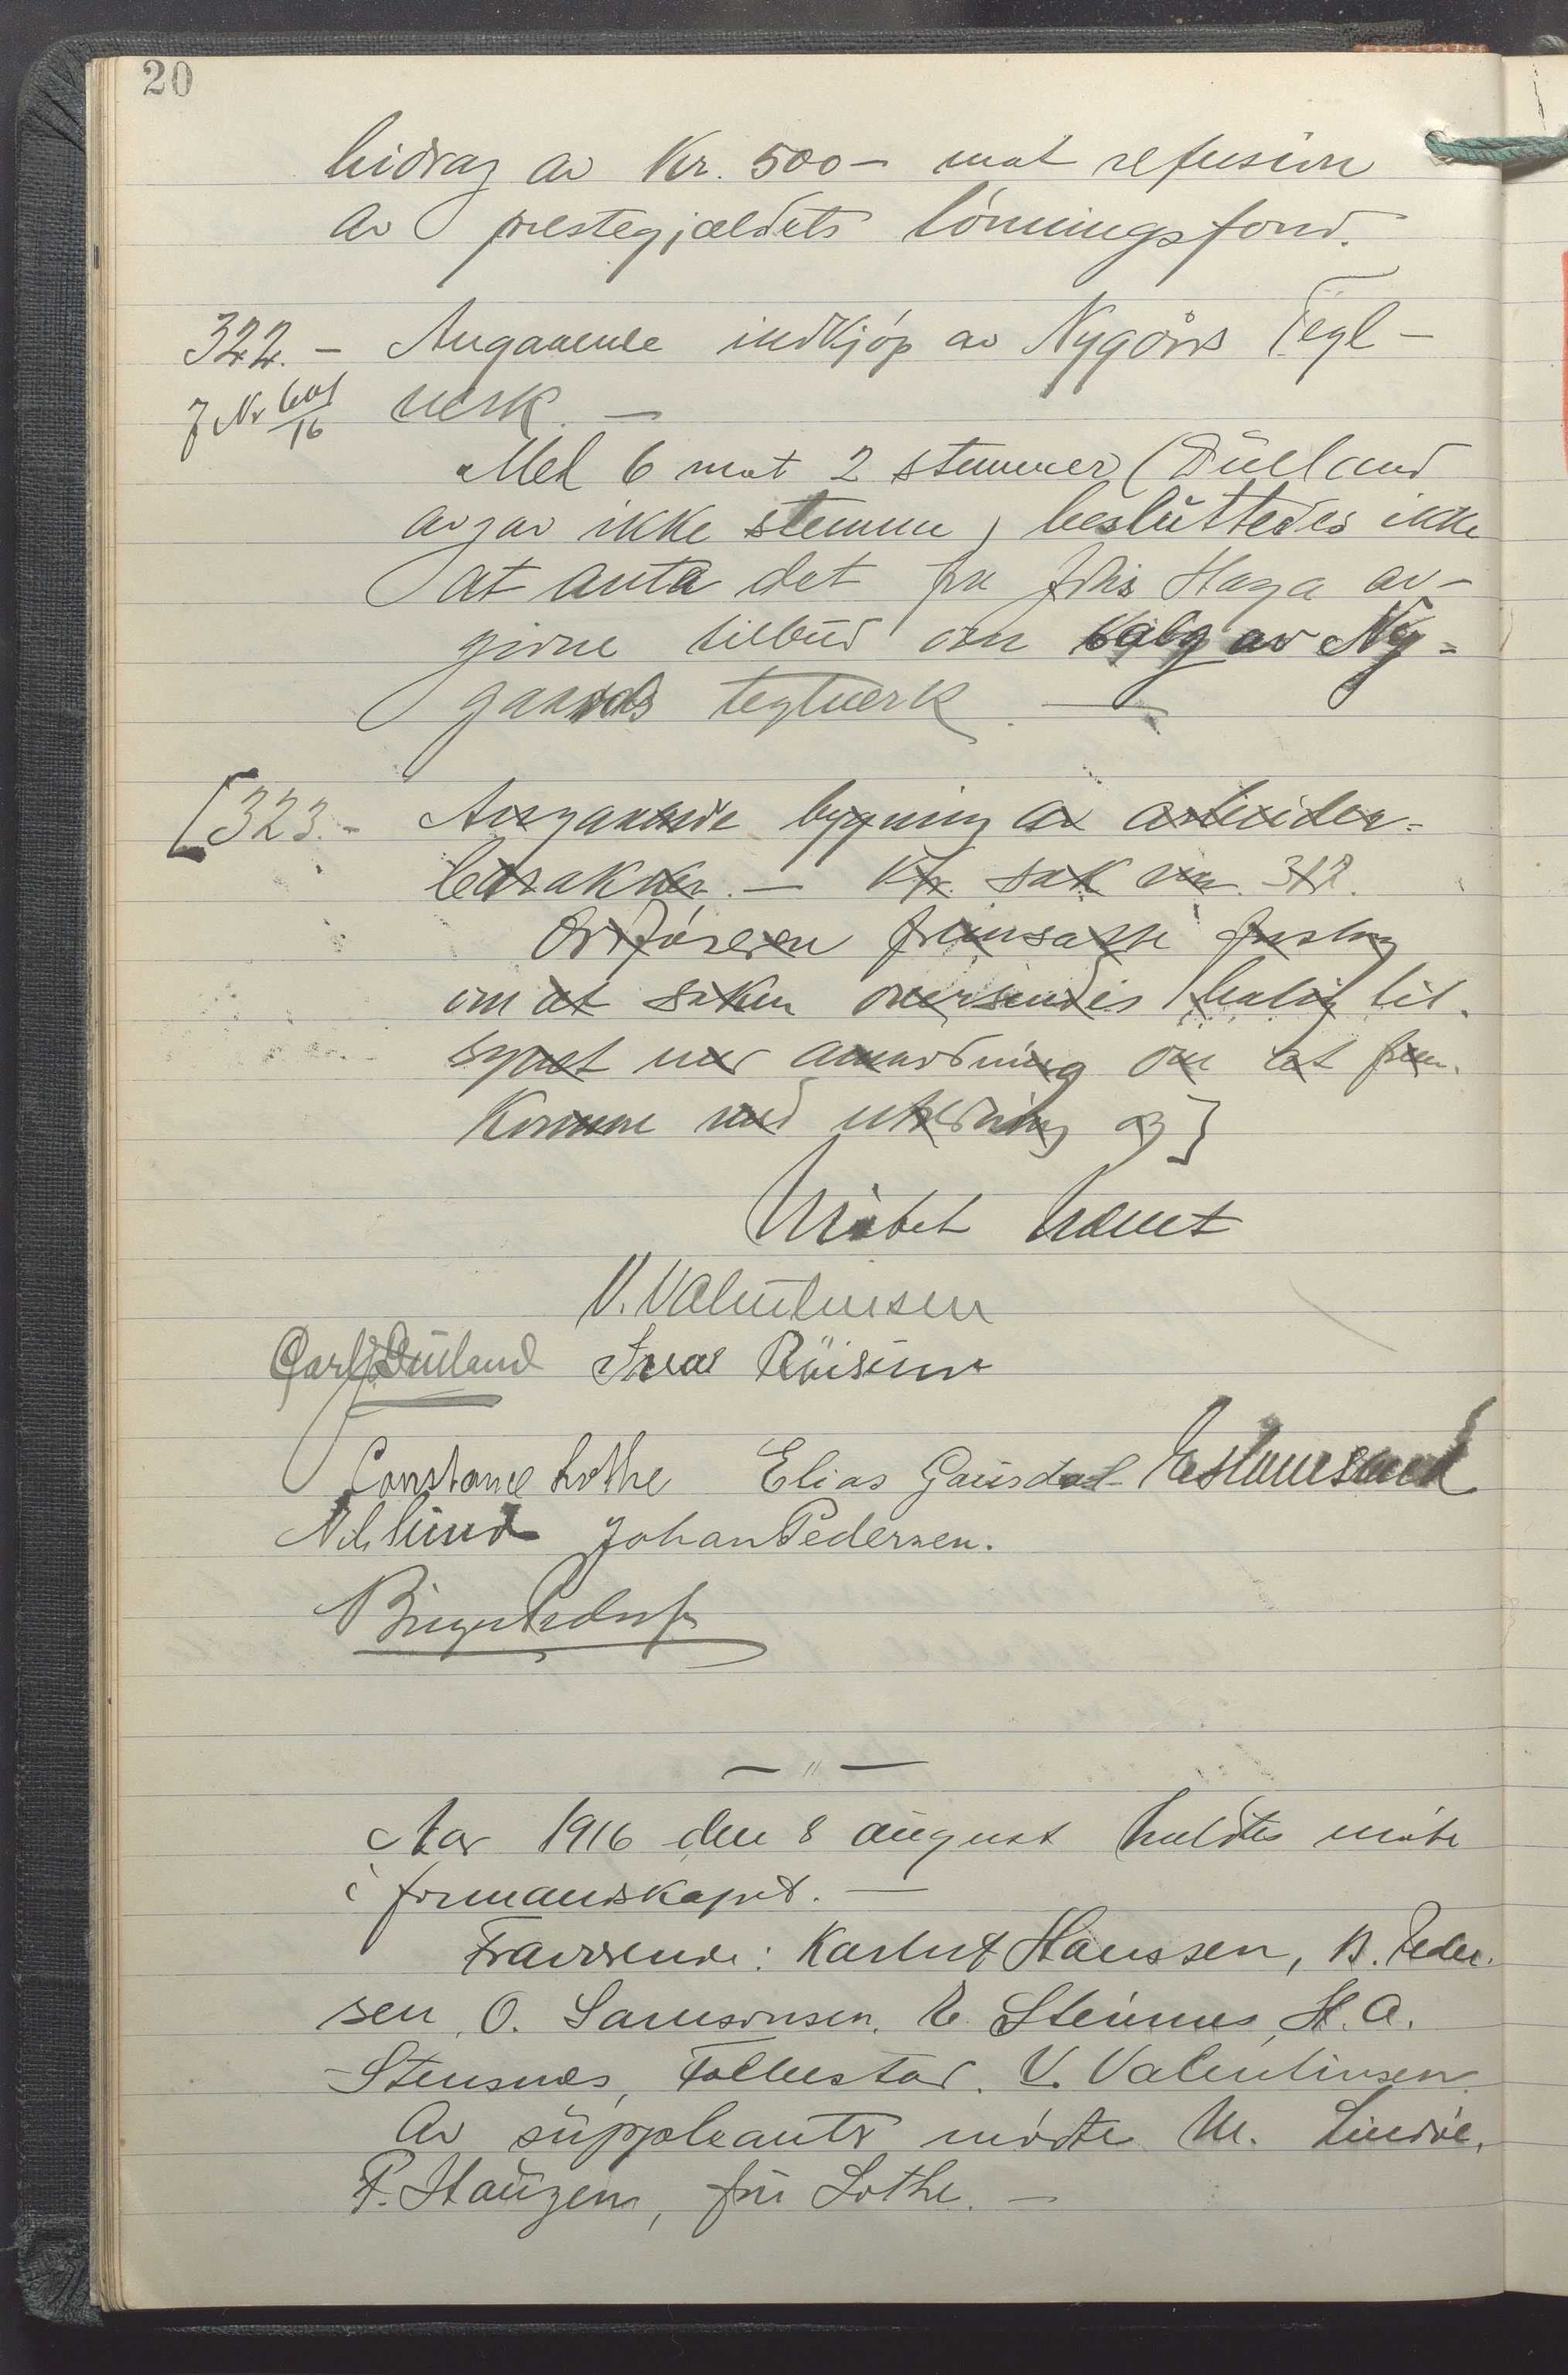 20
bidrag av Kr. 500 – mot refusion
av prestegjældets lönningsfond.
322. – Angaaende indkjøp av Nygårds Tegl-
J Nr 601/16 verk. –
Med 6 mot 2 stemmer (Düeland
avgav ikke stemme) beslüttedes ikke
at anta det fra Johs Haga av-
givne tilbud om salg av Ny-
gaards teglverk. –
[323. – Angaaende bygning av arbeider-
barakker. – Kfr. sak nr. 312.
Ordföreren fremsatte forslag
om at saken oversendes boligtil-
synet med anmodning om at frem-
komme med utredning og]
Mötet hævet
V. Valentinsen
Carl J. Düeland Ivar
Constance Lothe Elias Gausdal
Lund Johan Pedersen.
Birger Pedersen
– " –
Aar 1916 den 8 august holdtes möte
i formandskapet. –
Fraværende: Karluf Hanssen, B. Peder-
sen, O. Samsonsen, E. Steinnes, H. A.
Stensnes, Tollestad. V. Valentinsen.
Av suppleanter mödte M. Lindöe,
P. Haugen, fru Lothe. –